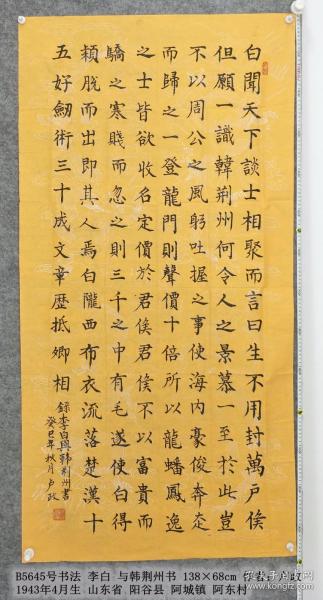 白聞天下談士相聚而言曰生不用封萬戶侯
但願一識韓荊州何令人之景慕一至於此豈
不以周公之風躬吐握之事使海內豪俊奔走
而歸之一登龍門則聲價十倍所以龍蟠鳳逸
之士皆欲收名定價於君侯君侯不以富貴而
驕之寒賤而忽之則三千之中有毛遂使白得
穎脫而出即其人焉白隴西布衣流落楚漢十
五好劒術三十成文章歷抵卿相
錄李白與韓荊州書
癸巳年秋月戶政
B5645号书法 李白 与韩荆州书 138×68cm 作者
1943年4月生 山东省 阳谷县 阿城镇 阿东村